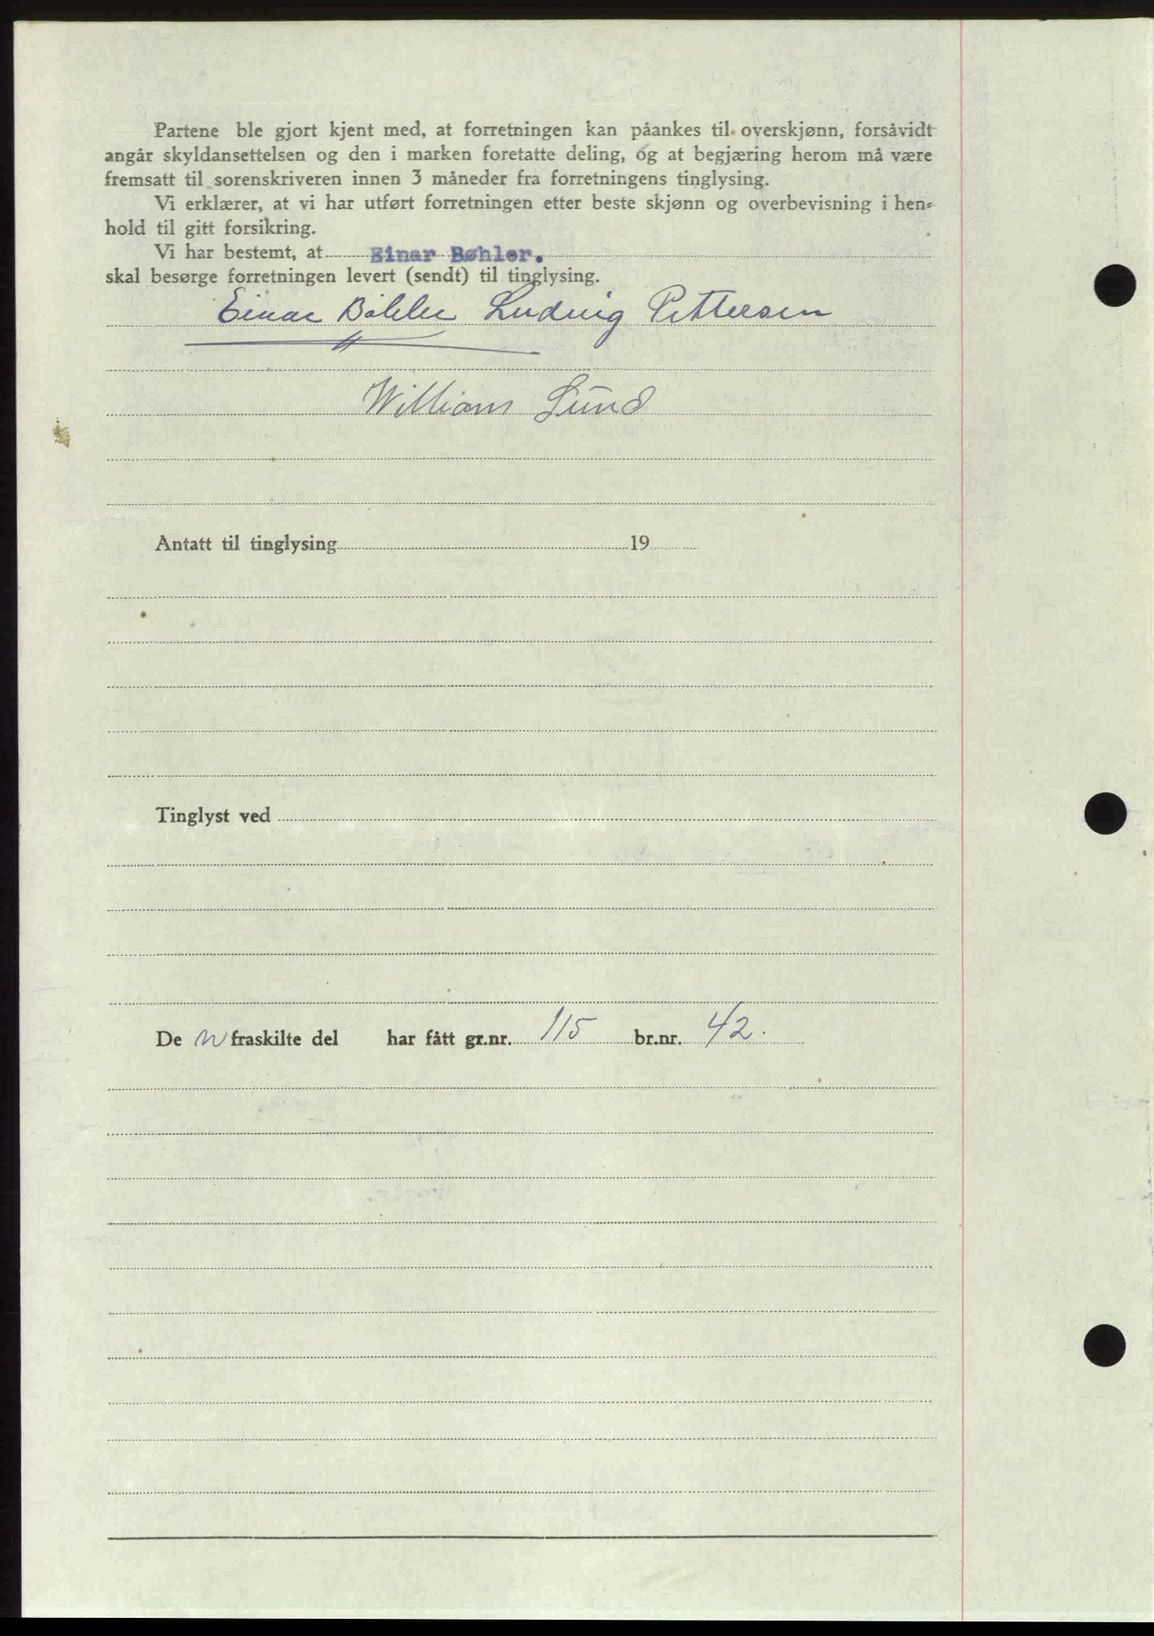 Partene ble gjort kjent med, at forretningen kan påankes til overskjønn, forsåvidt
angår skyldansettelsen og den i marken foretatte deling, og at begjæring herom må være
fremsatt til sorenskriveren innen 3 måneder fra forretningens tinglysing.
Vi erklærer, at vi har utført forretningen etter beste skjønn og overbevisning i hen-
hold til gitt forsikring.
Vi har bestemt, at Einar Bøhler.
skal besørge forretningen levert (sendt) til tinglysing.
Einar Bøhler Ludvig Pettersen
William Lund
Antatt til tinglysing 19
Tinglyst ved
De n fraskilte del har fått gr.nr. 115 br.nr. 42.